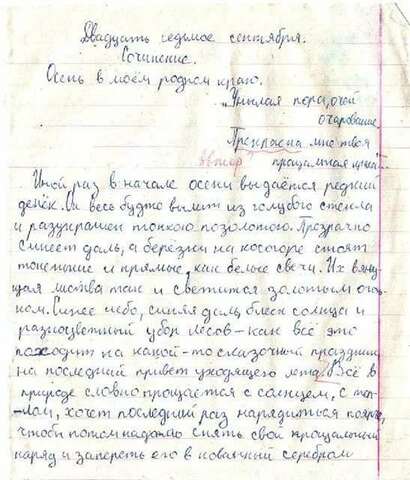 Двадцать седьмое сентября.
Сочинение.
Осень в моём родном краю.
„Унылая пора, очей
очарование
Прекрасна мне твоя
Автор? прощальная краса"...
Иной раз в начале осени выдаётся редкий
денёк. Он весь будто вылит из голубого стекла
и разукрашен тонкою позолотою. Прозрачно
синеет даль, а берёзки на косогоре стоят
тоненькие и прямые, как белые свечи. Их вяну-
щая листва так и светится золотым ог-
ном. Синее небо, синяя даль блеск солнца и
разноцветный убор лесов - как всё это
походит на какой-то сказочный праздник
на последний привет уходящего лета. Всё в
природе словно прощается с солнцем, с теп-
-лом, хочет последний раз нарядиться
чтоби потом снять свой прощальный
наряд и запереть его в кованый серебром